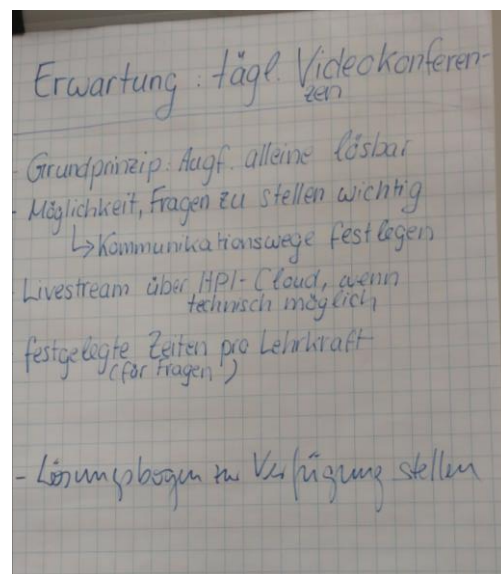 Erwartung : tägl. Videokonferen-
zen
- Grundprinzip: Aufg. alleine lösbar
- Möglichkeit, Fragen zu stellen wichtig
↳ Kommunikationswege festlegen
- Livestream über HPI-Cloud, wenn
technisch möglich
festgelegte Zeiten pro Lehrkraft
(für Fragen)
- Lösungsbogen zur Verfügung stellen